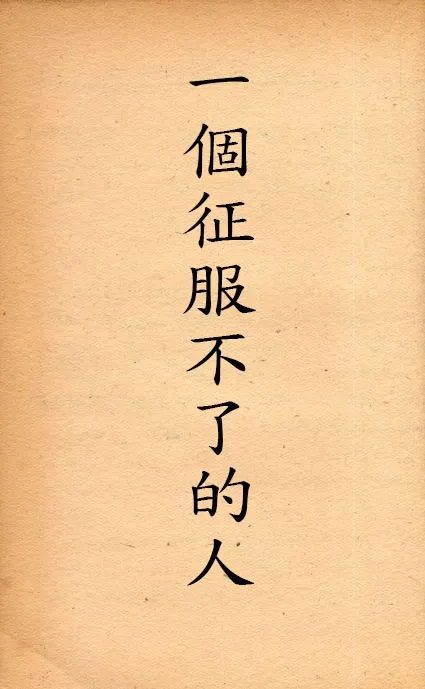 一個征服不了的人